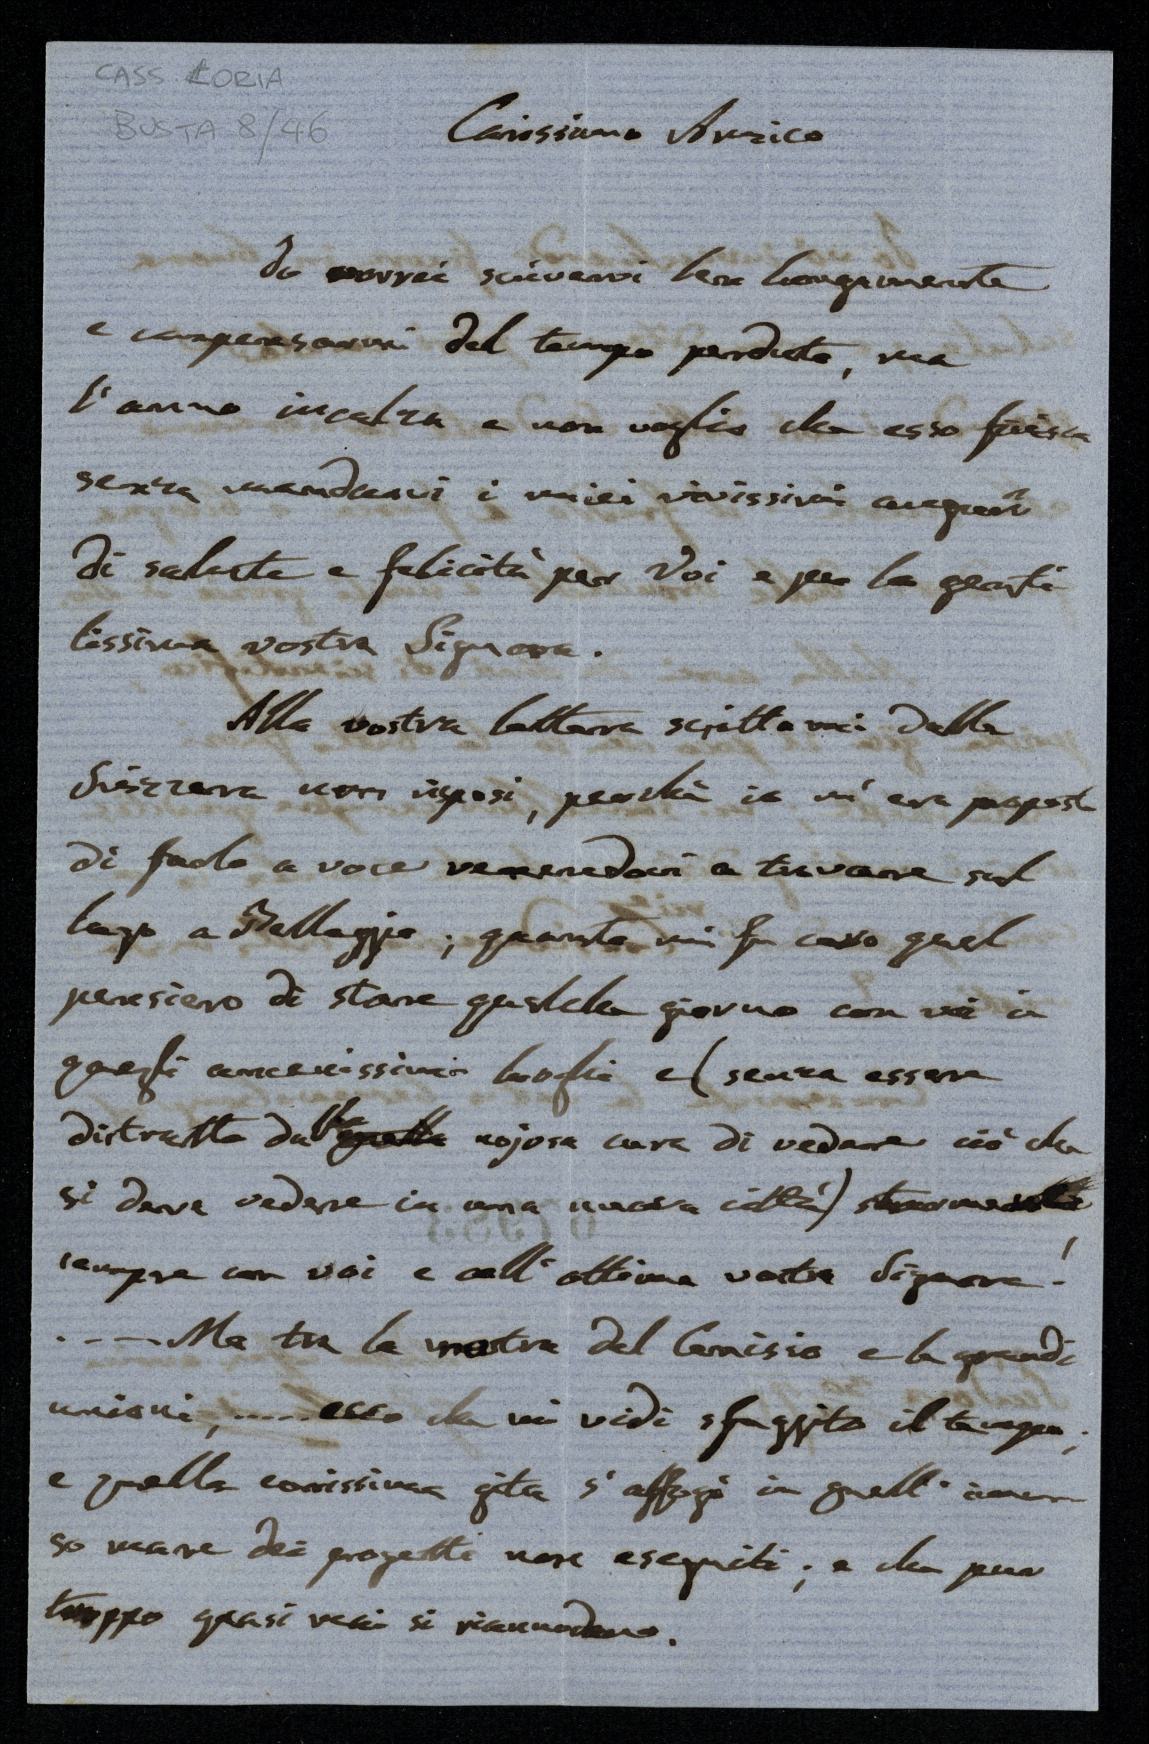 CASS. LORIA
BUSTA 8/46
Carissimo Amico
Io vorrei scrivervi ben lungamente
e compensarvi del tempo perduto, ma
l'anno incalza e non voglio che esso finisca
senza mandarvi i miei vivissimi augurî
di salute e felicità per Voi e per la genti
lissima vostra Signora.
Alla vostra lettera scrittami dalla
Svizzera non risposi, perchè io m'era proposto
di farlo a voce venendovi a trovare sul
lago a Bellaggio; quanto mi fu caro quel
pensiero di stare qualche giorno con voi in
quegli amenissimi luoghi e (senza essere
distratto dalla quella nojosa cura di vedere ciò che
si deve vedere in una nuova città)
sempre con voi e coll'ottima vostra Signora!
.---- Ma tra la mostra del Cenisio e le grandi
unioni, ..... ecco che mi vidi sfuggito il tempo;
e quella carissima gita s'affogò in quell'immen
so mare dei progetti non eseguiti; e che pur
troppo quasi mai si riannodano.